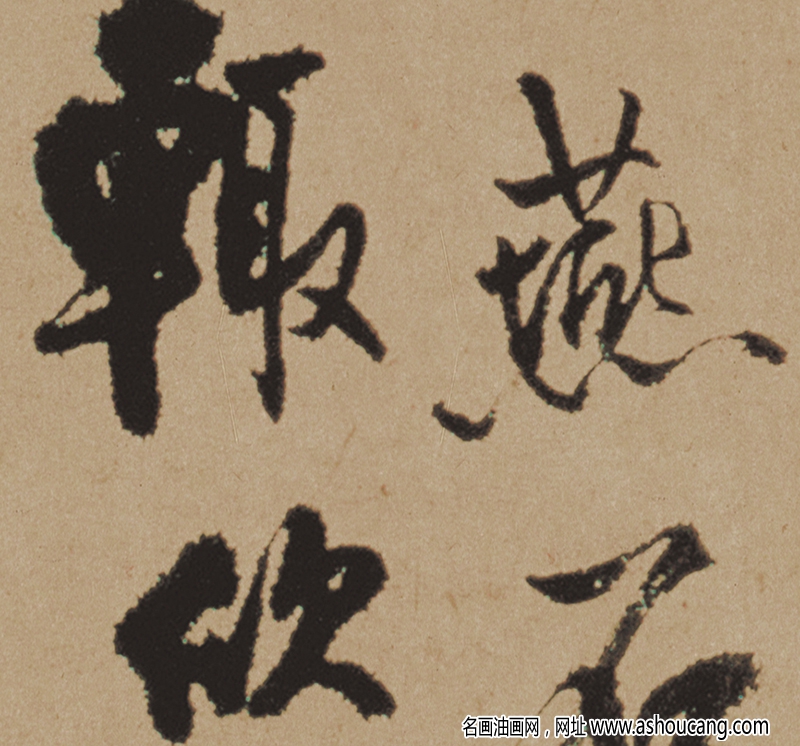 燕石
輒欣
名画油画网，网址 www.ashoucang.com